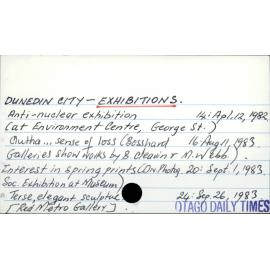 DUNEDIN CITY — EXHIBITIONS.
Anti-nuclear exhibition 14: Apl. 12, 1982
(at Environment Centre, George St.)
Outha... sense of loss (Bosshard 16 Aug 11, 1983
Galleries show works by B. & M. Webb).
Interest in spring prints (Dn Photog. 20: Sept. 1, 1983.
Soc. Exhibition at Museum)
Terse, elegant sculpture 24: Sep. 26, 1983
[Red Metro Gallery].
OTAGO DAILY TIMES